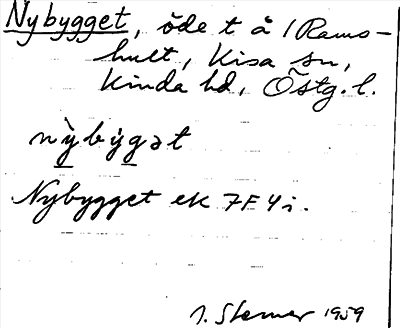 Nybygget, öde t å / Rams-
hult, Kisa sn,
Kinda hd, Östg. l.
nỳbýgət
Nybygget ek 7F4i.
J. Sterner 1959